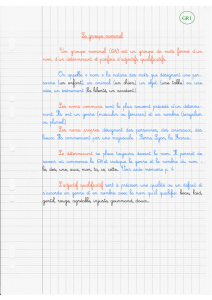 GR1
Le groupe nominal
Un groupe nominal (GN) est un groupe de mots formé d'un
nom, d'un déterminant et parfois d'adjectifs qualificatifs.
On appelle « nom » la nature des mots qui désignent une per-
sonne (un enfant), un animal (un chien) un objet (une table) ou une
idée, un sentiment (la liberté, un accident).
Les noms communs sont le plus souvent précédé d'un détermi-
nant. Ils ont un genre (masculin ou féminin) et un nombre (singulier
ou pluriel).
Les noms propres désignent des personnes, des animaux, des
lieux. Ils commencent par une majuscule : Thomas, Lyon, la France.
Le déterminant se place toujours devant le nom. Il permet de
savoir où commence le GN et indique le genre et le nombre du nom :
le, des, une, aux, mon, ta, ce, cette... Voir aide-mémoire p. 4
L'adjectif qualificatif sert à préciser une qualité ou un défaut et
s'accorde en genre et en nombre avec le nom qu'il qualifie : beau, laid,
gentil, rouge, agréable, injuste, gourmand, doux...